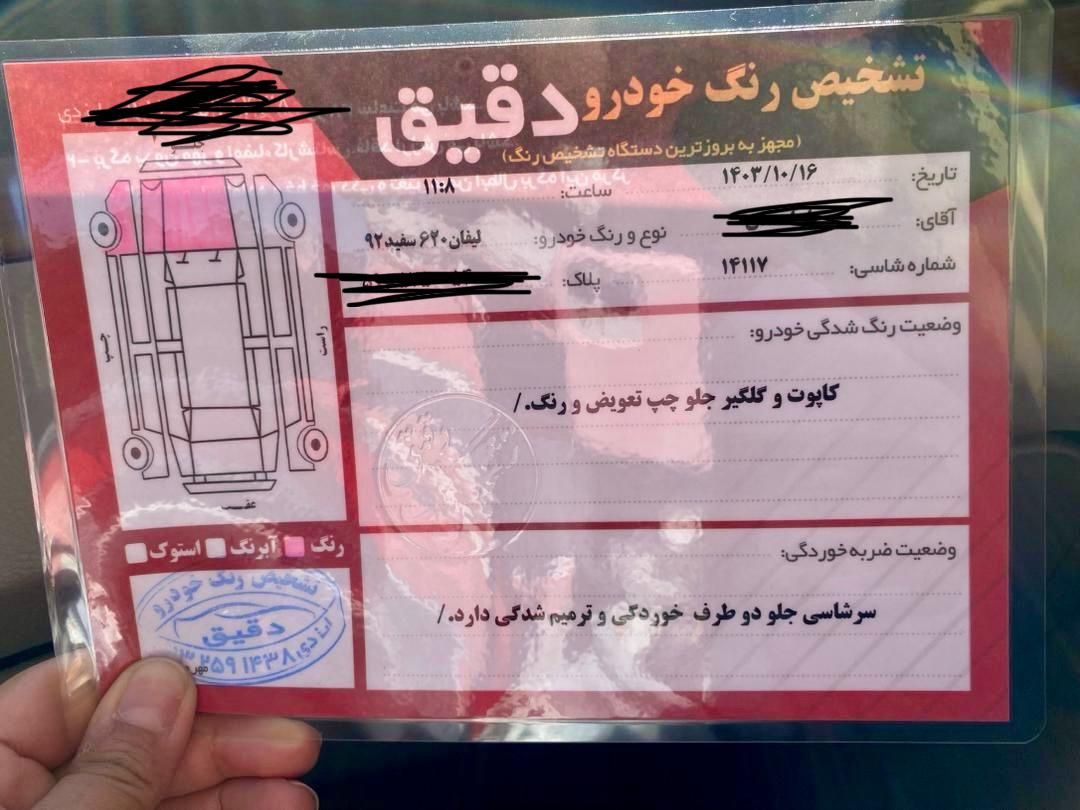 تشخیص رنگ خودرو دقیق
(مجهز به بروزترین دستگاه تشخیص رنگ)
تاریخ: ۱۴۰۳/۱۰/۱۶ ساعت: ۱۱:۸
آقای:
نوع و رنگ خودرو: لیفان ۶۲۰ سفید ۹۲
شماره شاسی: ۱۴۱۱۷ پلاک:
وضعیت رنگ شدگی خودرو:
کاپوت و گلگیر جلو چپ تعویض و رنگ. /
وضعیت ضربه خوردگی:
سرشاسی جلو دو طرف خوردگی و ترمیم شدگی دارد. /
چپ
راست
عقب
رنگ آبرنگ استوک
تشخیص رنگ خودرو
دقیق
ایذدی
مهر و